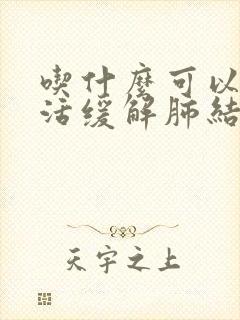 喫什麼可以
活緩解肺結
天宇之上